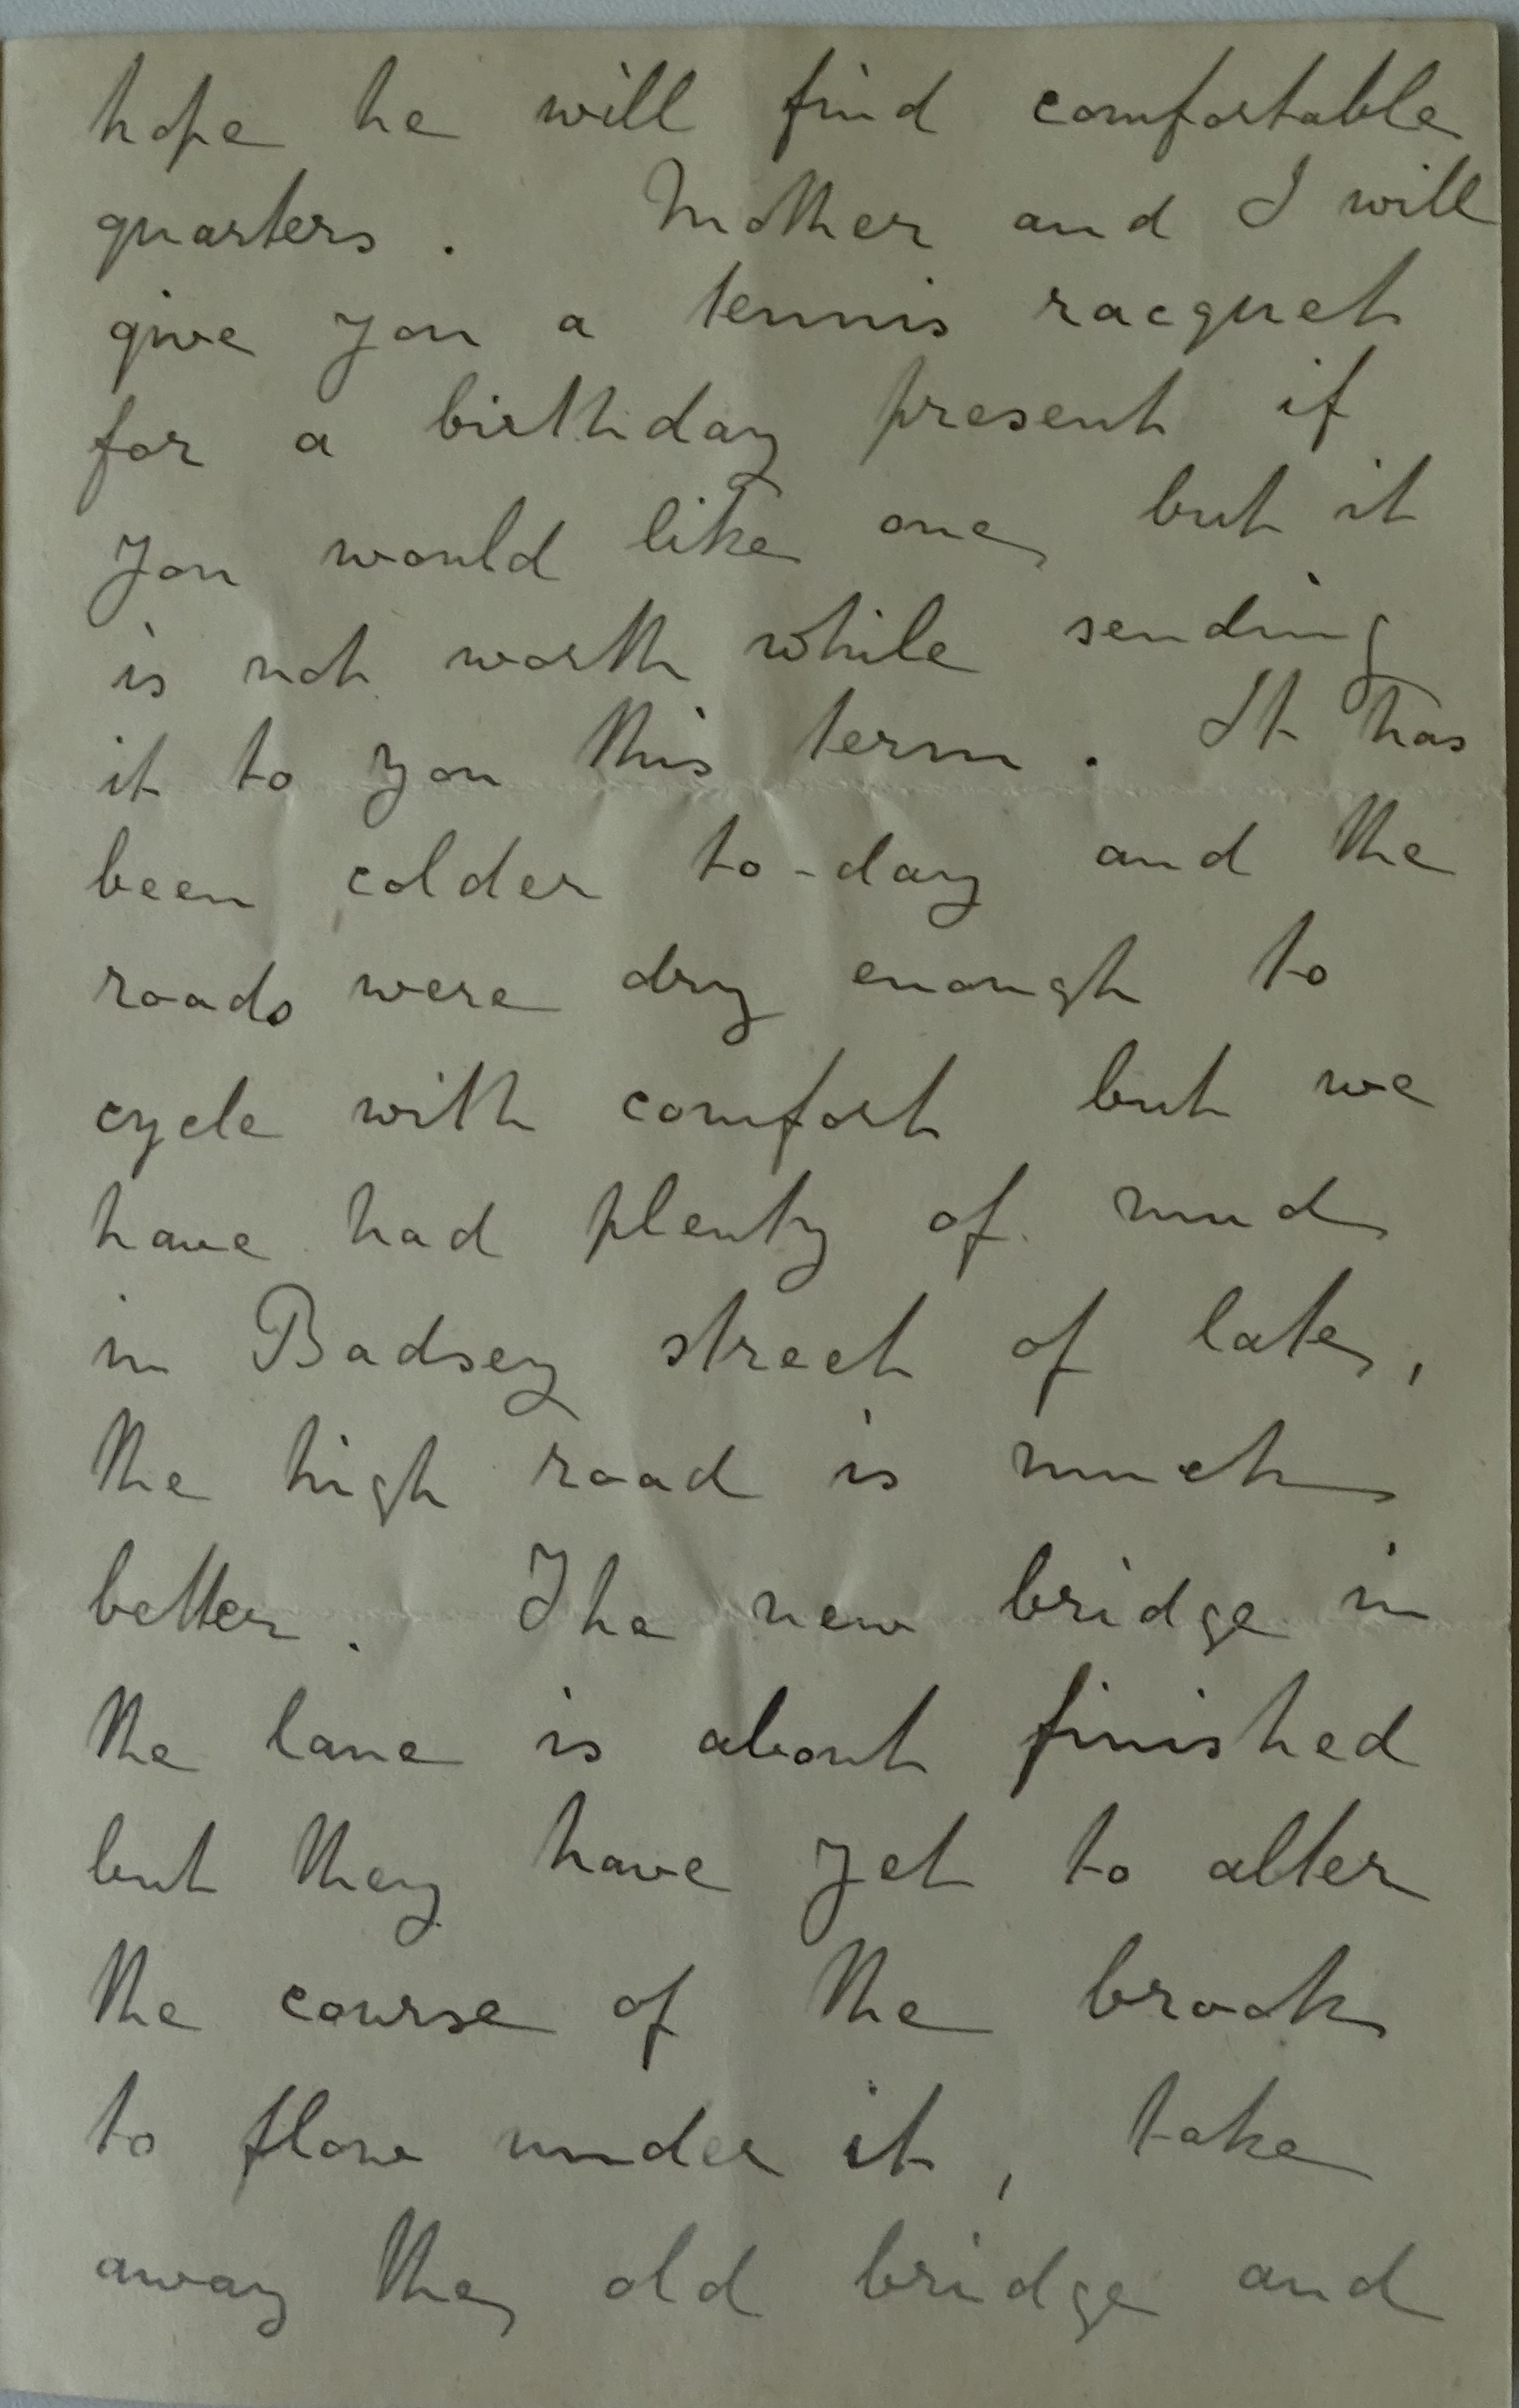 hope he will find comfortable
quarters. Mother and I will
give you a tennis racquet
for a birthday present if
you would like one, but it
is not worth while sending
it to you this term. It has
been colder to-day and the
roads were dry enough to
cycle with comfort but we
have had plenty of mud
in Badsey street of late,
the high road is much
better. The new bridge in
the lane is about finished
but they have yet to alter
the course of the brook
to flow under it, take
away the old bridge and